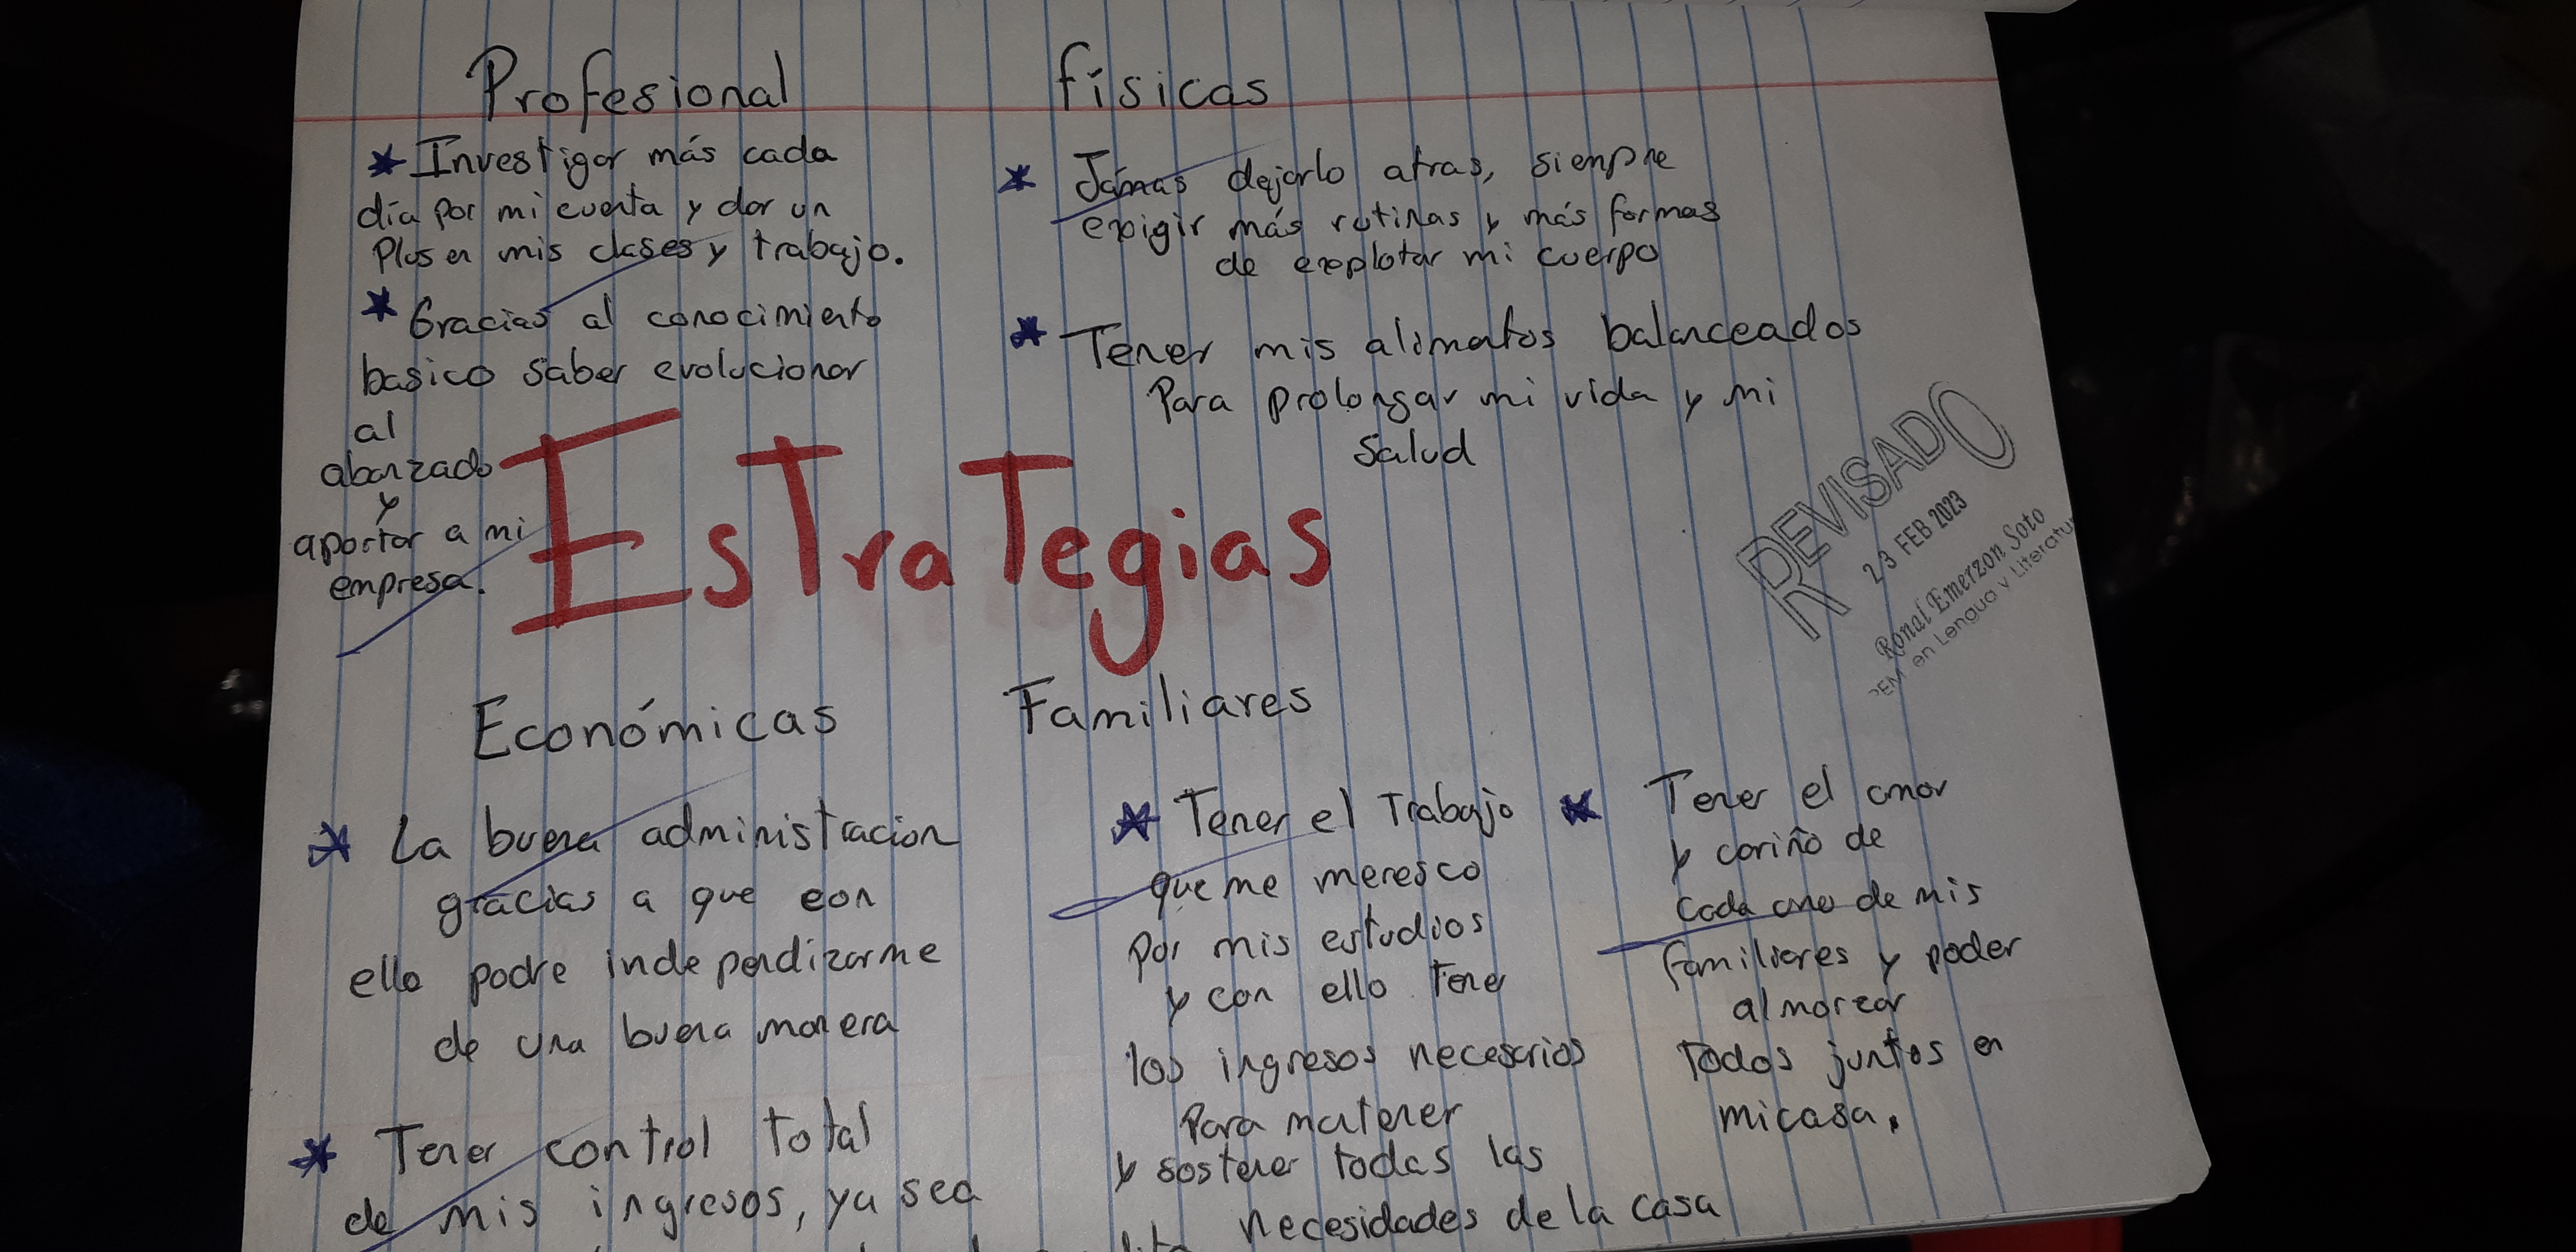 Profesional
* Investigar más cada
día por mi cuenta y dar un
Plus en mis clases y trabajo.
* Gracias al conocimiento
basico saber evolucionar
al
abanzado
y
aportar a mi
empresa.
físicas
* Jámas dejarlo atras, siempre
exigir más rutinas y más formas
de explotar mi cuerpo
* Tener mis alimentos balanceados
Para prolongar mi vida y mi
salud
EsTraTegias
REVISADO
23 FEB 2023
Ronal Emerzon Soto
PEM en Lengua y Literatu
Económicas
* La buena administracion
gracias a que con
ello podre independizarme
de una buena manera
* Tener control total
de mis ingresos, ya sea
Familiares
* Tener el Trabajo
que me meresco
por mis estudios
y con ello tener
los ingresos necesarios
Para mantener
y sostener todas las
necesidades de la casa
* Tener el amor
y cariño de
cada uno de mis
familiares y poder
almorzar
Todos juntos en
mi casa.